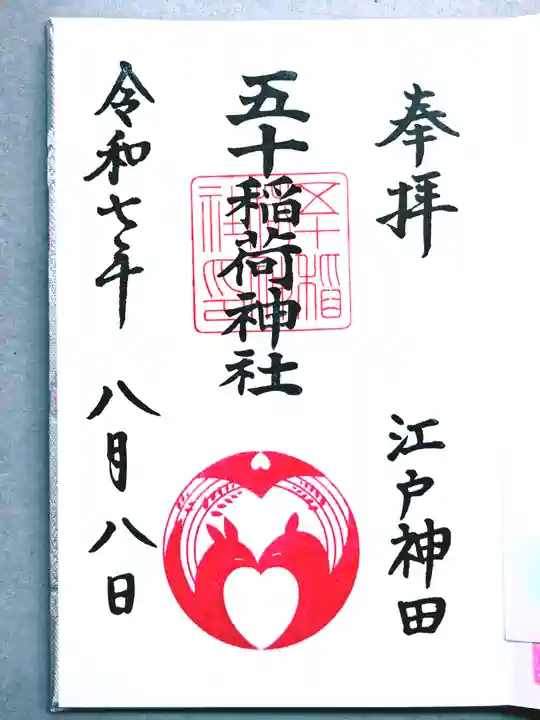 奉拝
江戸神田
五十稲荷神社
令和七年
八月八日